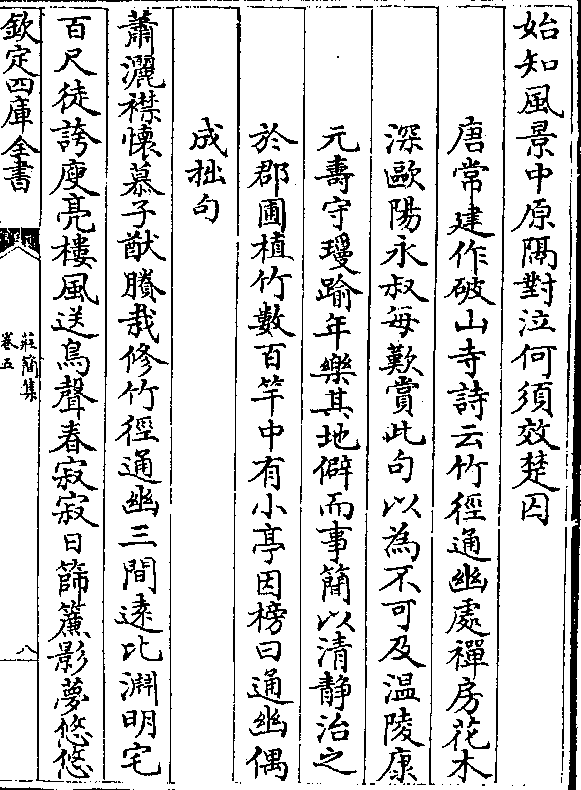 始知風景中原隔對泣何須效楚囚
唐常建作破山寺詩云竹徑通幽處禪房花木
深歐陽永叔每歎賞此句以為不可及温陵康
元壽守瓊踰年樂其地僻而事簡以清靜治之
於郡圃植竹數百竿中有小亭因榜曰通幽偶
成拙句
蕭灑襟懷慕子猷賸栽修竹徑通幽三間逺比淵明宅
百尺徒誇庾亮樓風送鳥聲春寂寂日篩簾影夢悠悠
欽定四庫全書
莊簡集
卷五
八